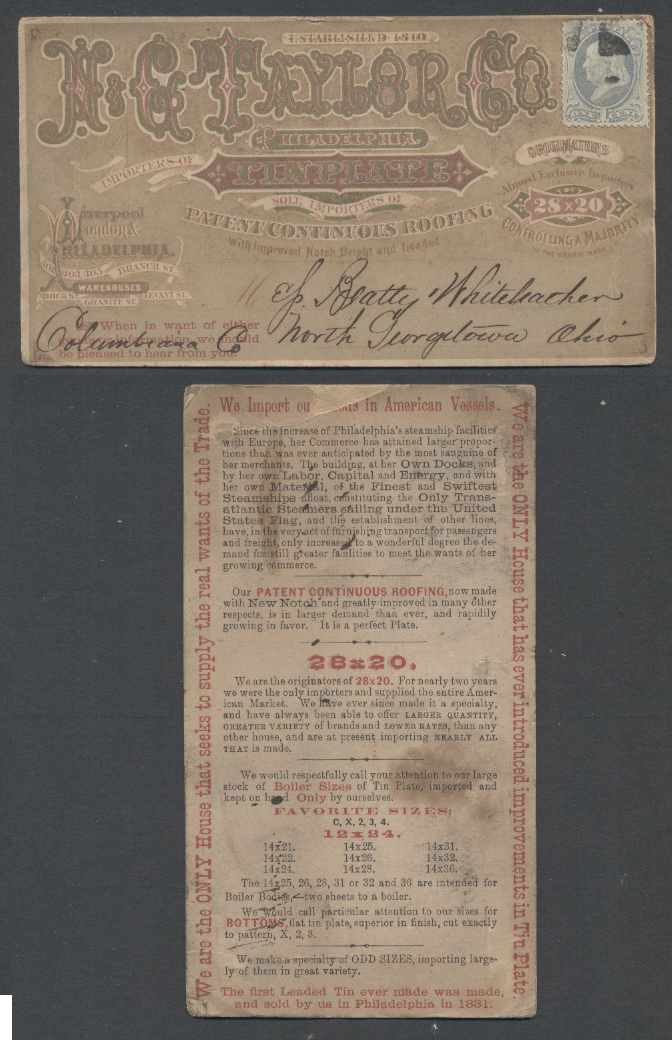 ESTABLISHED 1810.
N & G TAYLOR CO.
PHILADELPHIA
IMPORTERS OF
TIN PLATE
SOLE IMPORTERS OF
PATENT CONTINUOUS ROOFING
With Improved Notch Bright and Leaded
ORIGINATORS
OF
Almost Exclusive Importers
28x20
CONTROLLING A MAJORITY
OF THE ORANGE MADE
Liverpool
London &
PHILADELPHIA.
301, 303, 305, BRANCH ST.
WAREHOUSES
GRANITE ST.
When in want of either
we should
be pleased to hear from you.
Beatty & Whiteleather
North Georgetown Ohio
Columbiana Co
We Import ou in American Vessels.
We are the ONLY House that seeks to supply the real wants of the Trade.
Since the increase of Philadelphia's steamship facilities
with Europe, her Commerce has attained larger propor-
tions than was ever anticipated by the most sanguine of
her merchants. The building, at her Own Docks, and
by her own Labor, Capital and Energy, and with
her own Material, of the Finest and Swiftest
Steamships afloat, constituting the Only Trans-
atlantic Steamers sailing under the United
States Flag, and the establishment of other lines,
have, in the very act of furnishing transport for passengers
and freight, only increased to a wonderful degree the de-
mand for still greater facilities to meet the wants of her
growing commerce.
Our PATENT CONTINUOUS ROOFING, now made
with New Notch and greatly improved in many other
respects, is in larger demand than ever, and rapidily
growing in favor. It is a perfect Plate.
28x20.
We are the originators of 28x20. For nearly two years
we were the only importers and supplied the entire Amer-
ican Market. We have ever since made it a specialty,
and have always been able to offer LARGER QUANTITY,
GREATER VARIETY of brands and LOWER RATES, than any
other house, and are at present importing NEARLY ALL
THAT is made.
We would respectfully call your attention to our large
stock of Boiler Sizes of Tin Plate, imported and
kept on hand Only by ourselves.
FAVORITE SIZES:
C, X, 2, 3, 4.
12x24.
14x21. 14x25. 14x31.
14x22. 14x26. 14x32.
14x24. 14x28. 14x36.
The 14x25, 26, 28, 31 or 32 and 36 are intended for
Boiler Bodies,—two sheets to a boiler.
We would call particular attention to our sizes for
BOTTOMS, flat tin plate, superior in finish, cut exactly
to pattern, X, 2, 3.
We make a specialty of ODD SIZES, importing large-
ly of them in great variety.
The first Leaded Tin ever made was made,
and sold by us in Philadelphia in 1831.
We are the ONLY House that has ever introduced improvements in Tin Plate.